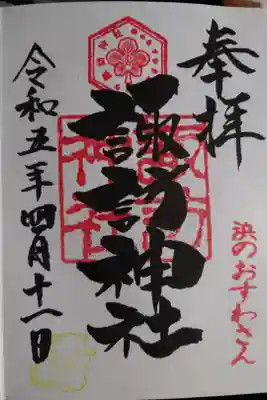 奉拝
浜のおすわさん
諏訪神社
令和五年四月十一日